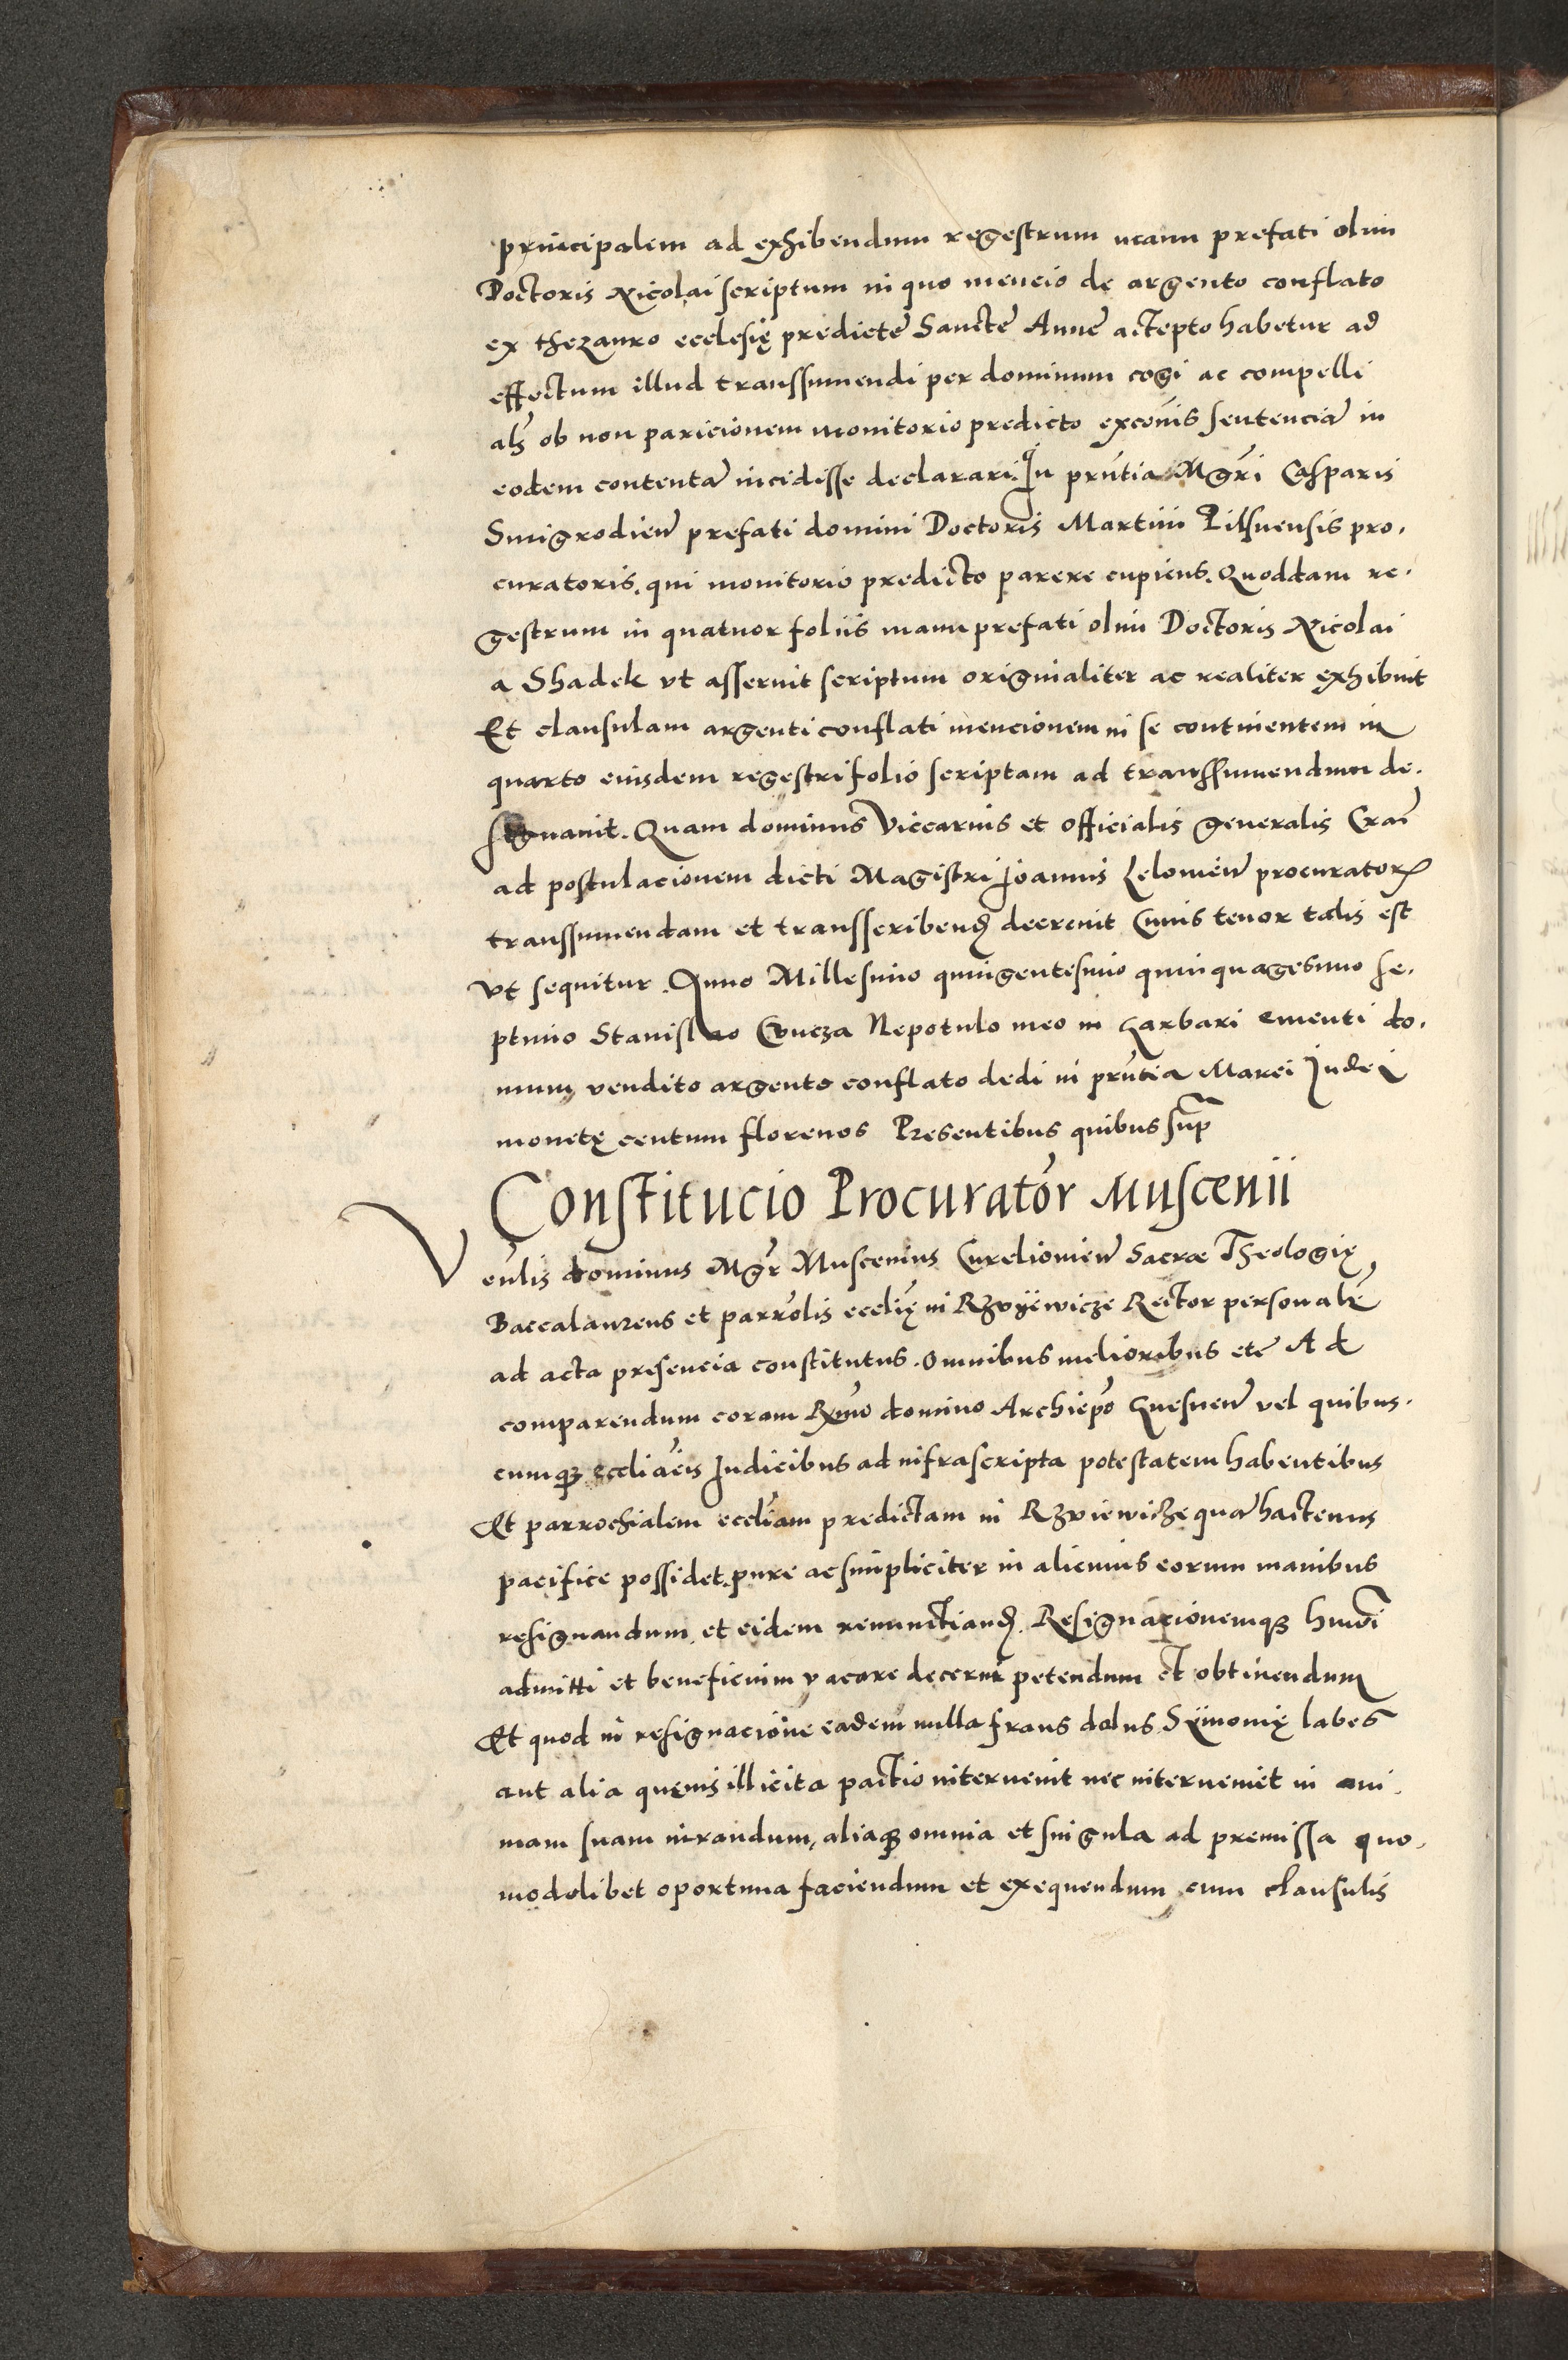 principalem ad exhibendum regestrum manu prefati olim
Doctoris Nicolai scriptum in quo mencio de argento conflato
ex thezauro ecclesię predicte Sancte Anne accepto habetur ad
effectum illud transsumendi per dominum cogi ac compelli
als̄ ob non paricionem monitorio predicto excōis sentenciā in
eodem contentā incidisse declarari. In prn̄tia Mgr̄i Casparis
Smigrodień prefati domini Doctoris Martini Pilsnensis pro.
curatoris, qui monitorio predicto parere cupiens. Quoddam re.
gestrum in quatuor foliis manu prefati olim Doctoris Nicolai
a Shadek vt asseruit scriptum originaliter ac realiter exhibuit
Et clausulam argenti conflati mencionem in se continentem in
quarto eiusdem regestri folio scriptam ad transsumendum de.
signauit. Quam dominus Viccarius et officialis generalis Craǹ
ad postulacionem dicti Magistri Joannis Lelowień procuratoꝝ
transsumendam et transscribenđ decreuit Cuius tenor talis est
vt sequitur. Anno Millesimo quingentesimo quinquagesimo se.
ptimo Stanislao Crucza Nepotulo meo in Garbari ementi do.
mum, vendito argento conflato dedi in prn̄tia Marci Judei
monetę centum florenos Presentibus quibus sup̄
Constitucio Procurator̄ Muscenii
Ven̄lis dominus Mgr̄ Muscenius Cureliowień Sacræ Theologię
Baccalaureus et parrōlis eccl̄ię in Rzvyewicze Rector personalr̄
ad acta presencia constitutus. omnibus melioribus etc̄ Ad
comparendum coram Rm̄o domino Archiep̄o Gnesneń vel quibus.
cumqꝫ eccl̄iacis Judicibus ad infrascripta potestatem habentibus
Et parrochialem eccl̄iam predictam in Rzviewicze quā hactenus
pacifice possidet, pure ac simpliciter in alicuius eorum manibus
resignandum, et eidem renunctianđ. Resignacionemqꝫ hmōi
admitti et beneficium vacare decerni petendum et obtinendum
Et quod in resignacione eadem nulla fraus dolus Symonię labes
aut alia quęuis illicita pactio interuenit nec interueniet in ani.
mam suam iurandum, aliaqꝫ omnia et singula ad premissa quo.
modolibet oportuna faciendum et exequendum cum clausulis